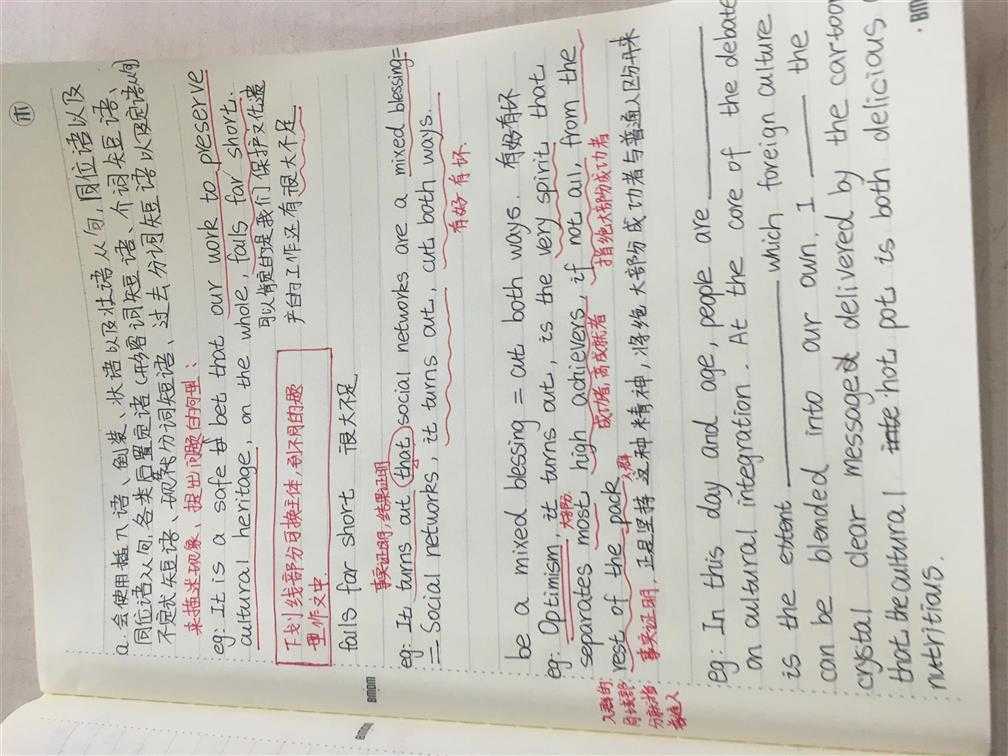 木
a. 会使用插入语、倒装、状语以及状语从句,同位语以及
同位语从句,各类后置定语(形容词短语、介词短语、
不定式短语、现在分词短语、过去分词短语以及定语从句)
来描述现象,提出问题的句型:
eg: It is a safe bet that our work to preserve
cultural heritage, on the whole, falls far short.
可以肯定的是我们保护文化遗
产的工作还有很大不足
下划线部分可换主体到不同的题
型作文中.
falls far short 很大不足
事实证明,结果证明
eg: It turns out that social networks are a mixed blessing=
= Social networks, it turns out, cut both ways.
有好有坏.
be a mixed blessing = cut both ways. 有好有坏
eg: Optimism, it turns out, is the very spirit that
大部分
separates most high achievers, if not all, from the
成功者,高成就者 指绝大部份成功者
rest of the pack 人群
事实证明,正是坚持这种精神,将绝大部份成功者与普通人区分开来
人群的
普通人
eg: In this day and age, people are
on cultural integration. At the core of the debate
is the extent which foreign culture
can be blended into our own. I the
crystal clear message delivered by the cartoon
that the cultural hot pot is both delicious
nutritials.
BMDM